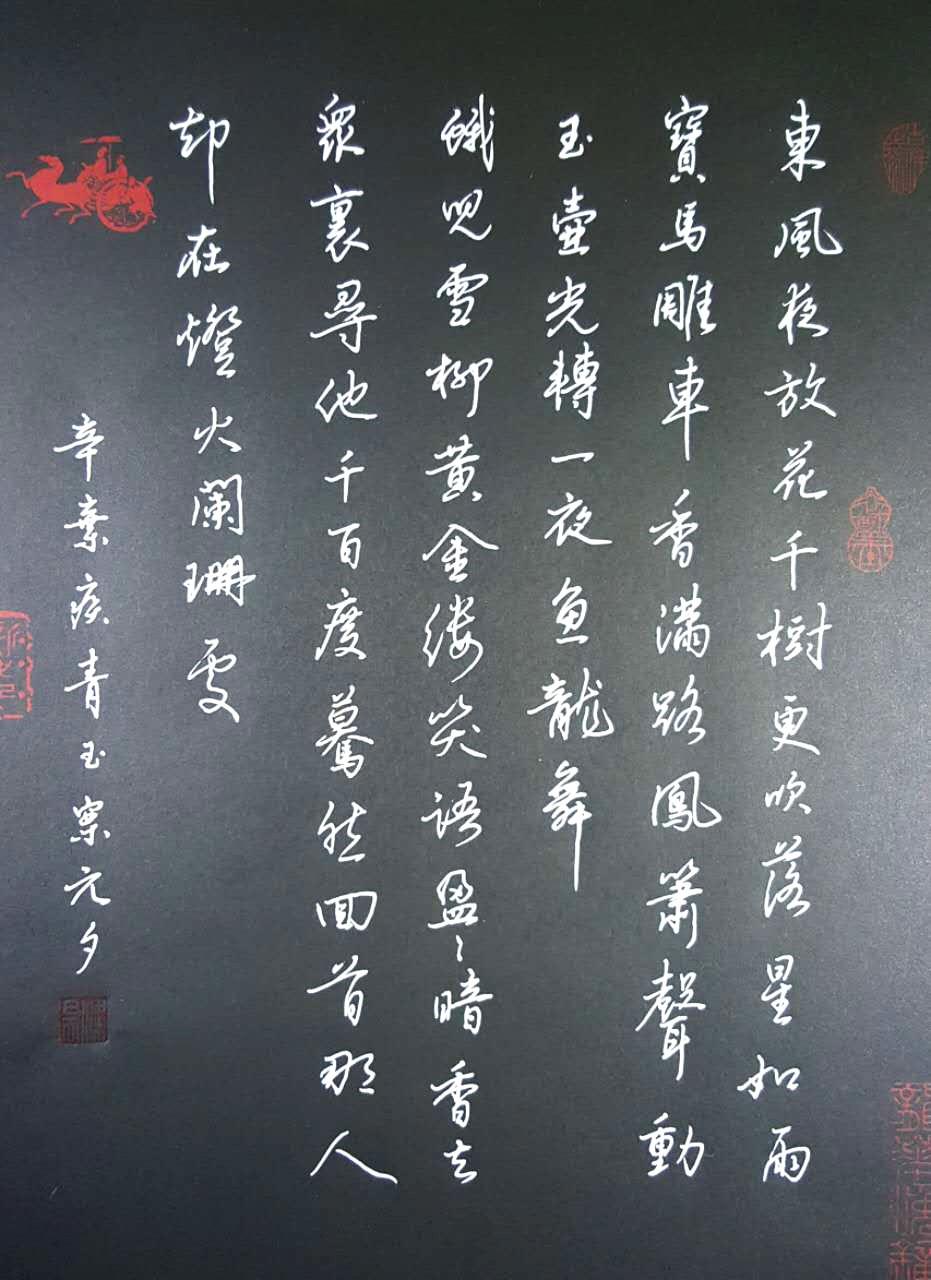 東風夜放花千樹更吹落星如雨
寶馬雕車香滿路鳳簫聲動
玉壺光轉一夜魚龍舞
蛾兒雪柳黄金縷笑語盈〻暗香去
衆裏尋他千百度驀然回首那人
却在燈火闌珊處
辛棄疾青玉案元夕